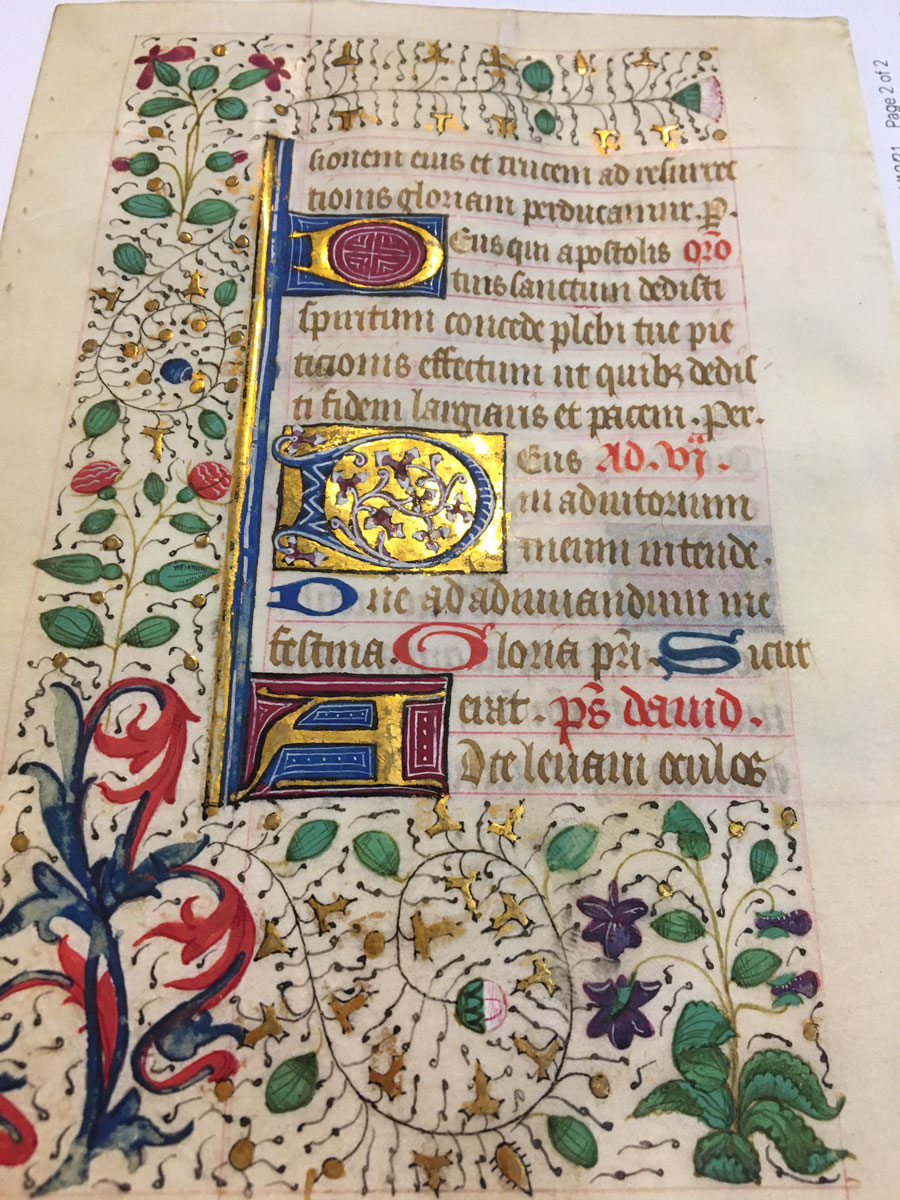 sionem eius et crucem ad resurrec
tionis gloriam perducamur. P.
DEus qui apostolis oro
tuis sanctum dedisti
spiritum concede plebi tue pie
ticionis effectum ut quibꝫ dedis
ti fidem largiaris et pacem. Per.
DEus Ad. vj.
in adiutorium
meum intende.
Dne ad adiuuandum me
festina. Gloria pri. Sicut
erat. ps dauid.
AD te leuaui oculos
Page 2 of 2